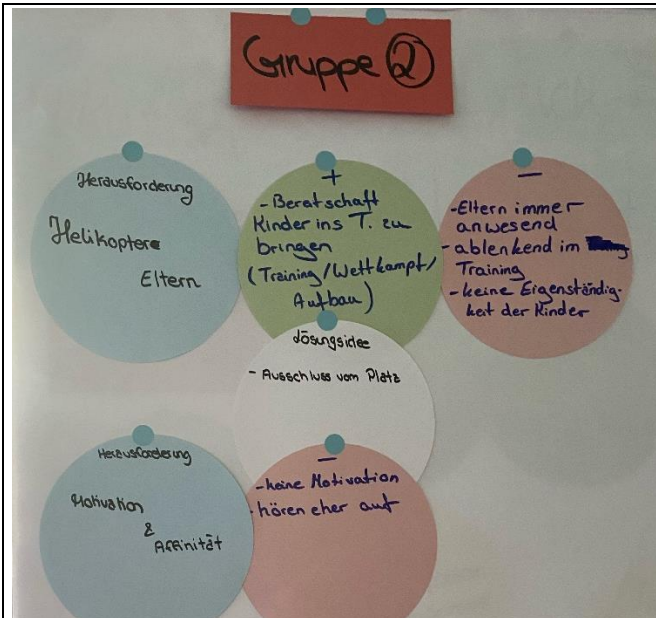 Gruppe 2
Herausforderung
Helikoptere
Eltern
+
- Beratschaft
Kinder ins T. zu
bringen
(Training/Wettkampf/
Aufbau)
-
- Eltern immer
anwesend
- ablenkend im
Training
- keine Eigenständig-
keit der Kinder
Lösungsidee
- Ausschluss vom Platz
Herausforderung
Motivation
&
Affinität
-
- keine Motivation
- hören eher auf